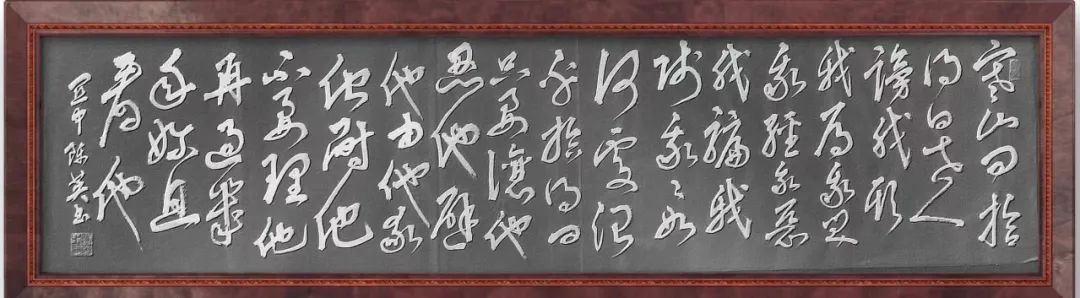 寒山問拾
得曰世人
謗我欺
我辱我笑
我輕我惡
我騙我
我如
何處治
乎拾得曰
只要讓他
忍他避
他由他敬
他耐他
不要理他
再過幾
年你且
看他
申 陳英書